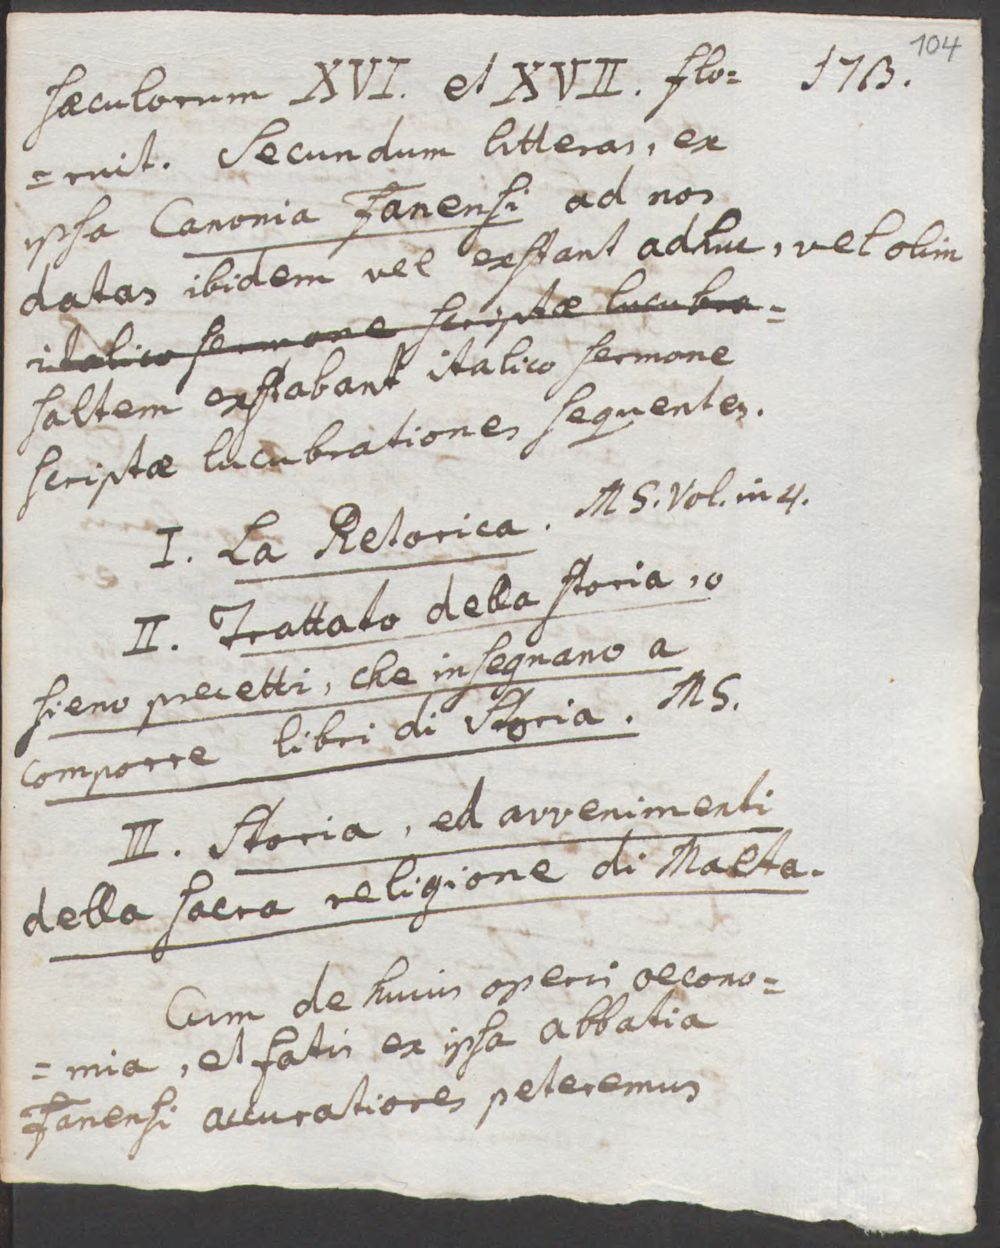 104
sæculorum XVI. et XVII. flo= 173.
=ruit. Secundum litteras, ex
ipsa Canonia Fanensi ad nos
datas ibidem vel exstant adhuc, vel olim
italico sermone scriptæ lucubra=
saltem exstabant italico sermone
scriptæ lucubrationes sequentes.
I. La Retorica. MS. Vol. in 4.
II. Trattato della storia, o
sieno precetti, che insegnano a
comporre libri di Storia. MS.
III. Storia, ed avvenimenti
della sacra religione di Malta.
Cum de huius operis oecono=
=mia, et fatis ex ipsa abbatia
Fanensi accuratiores peteremus